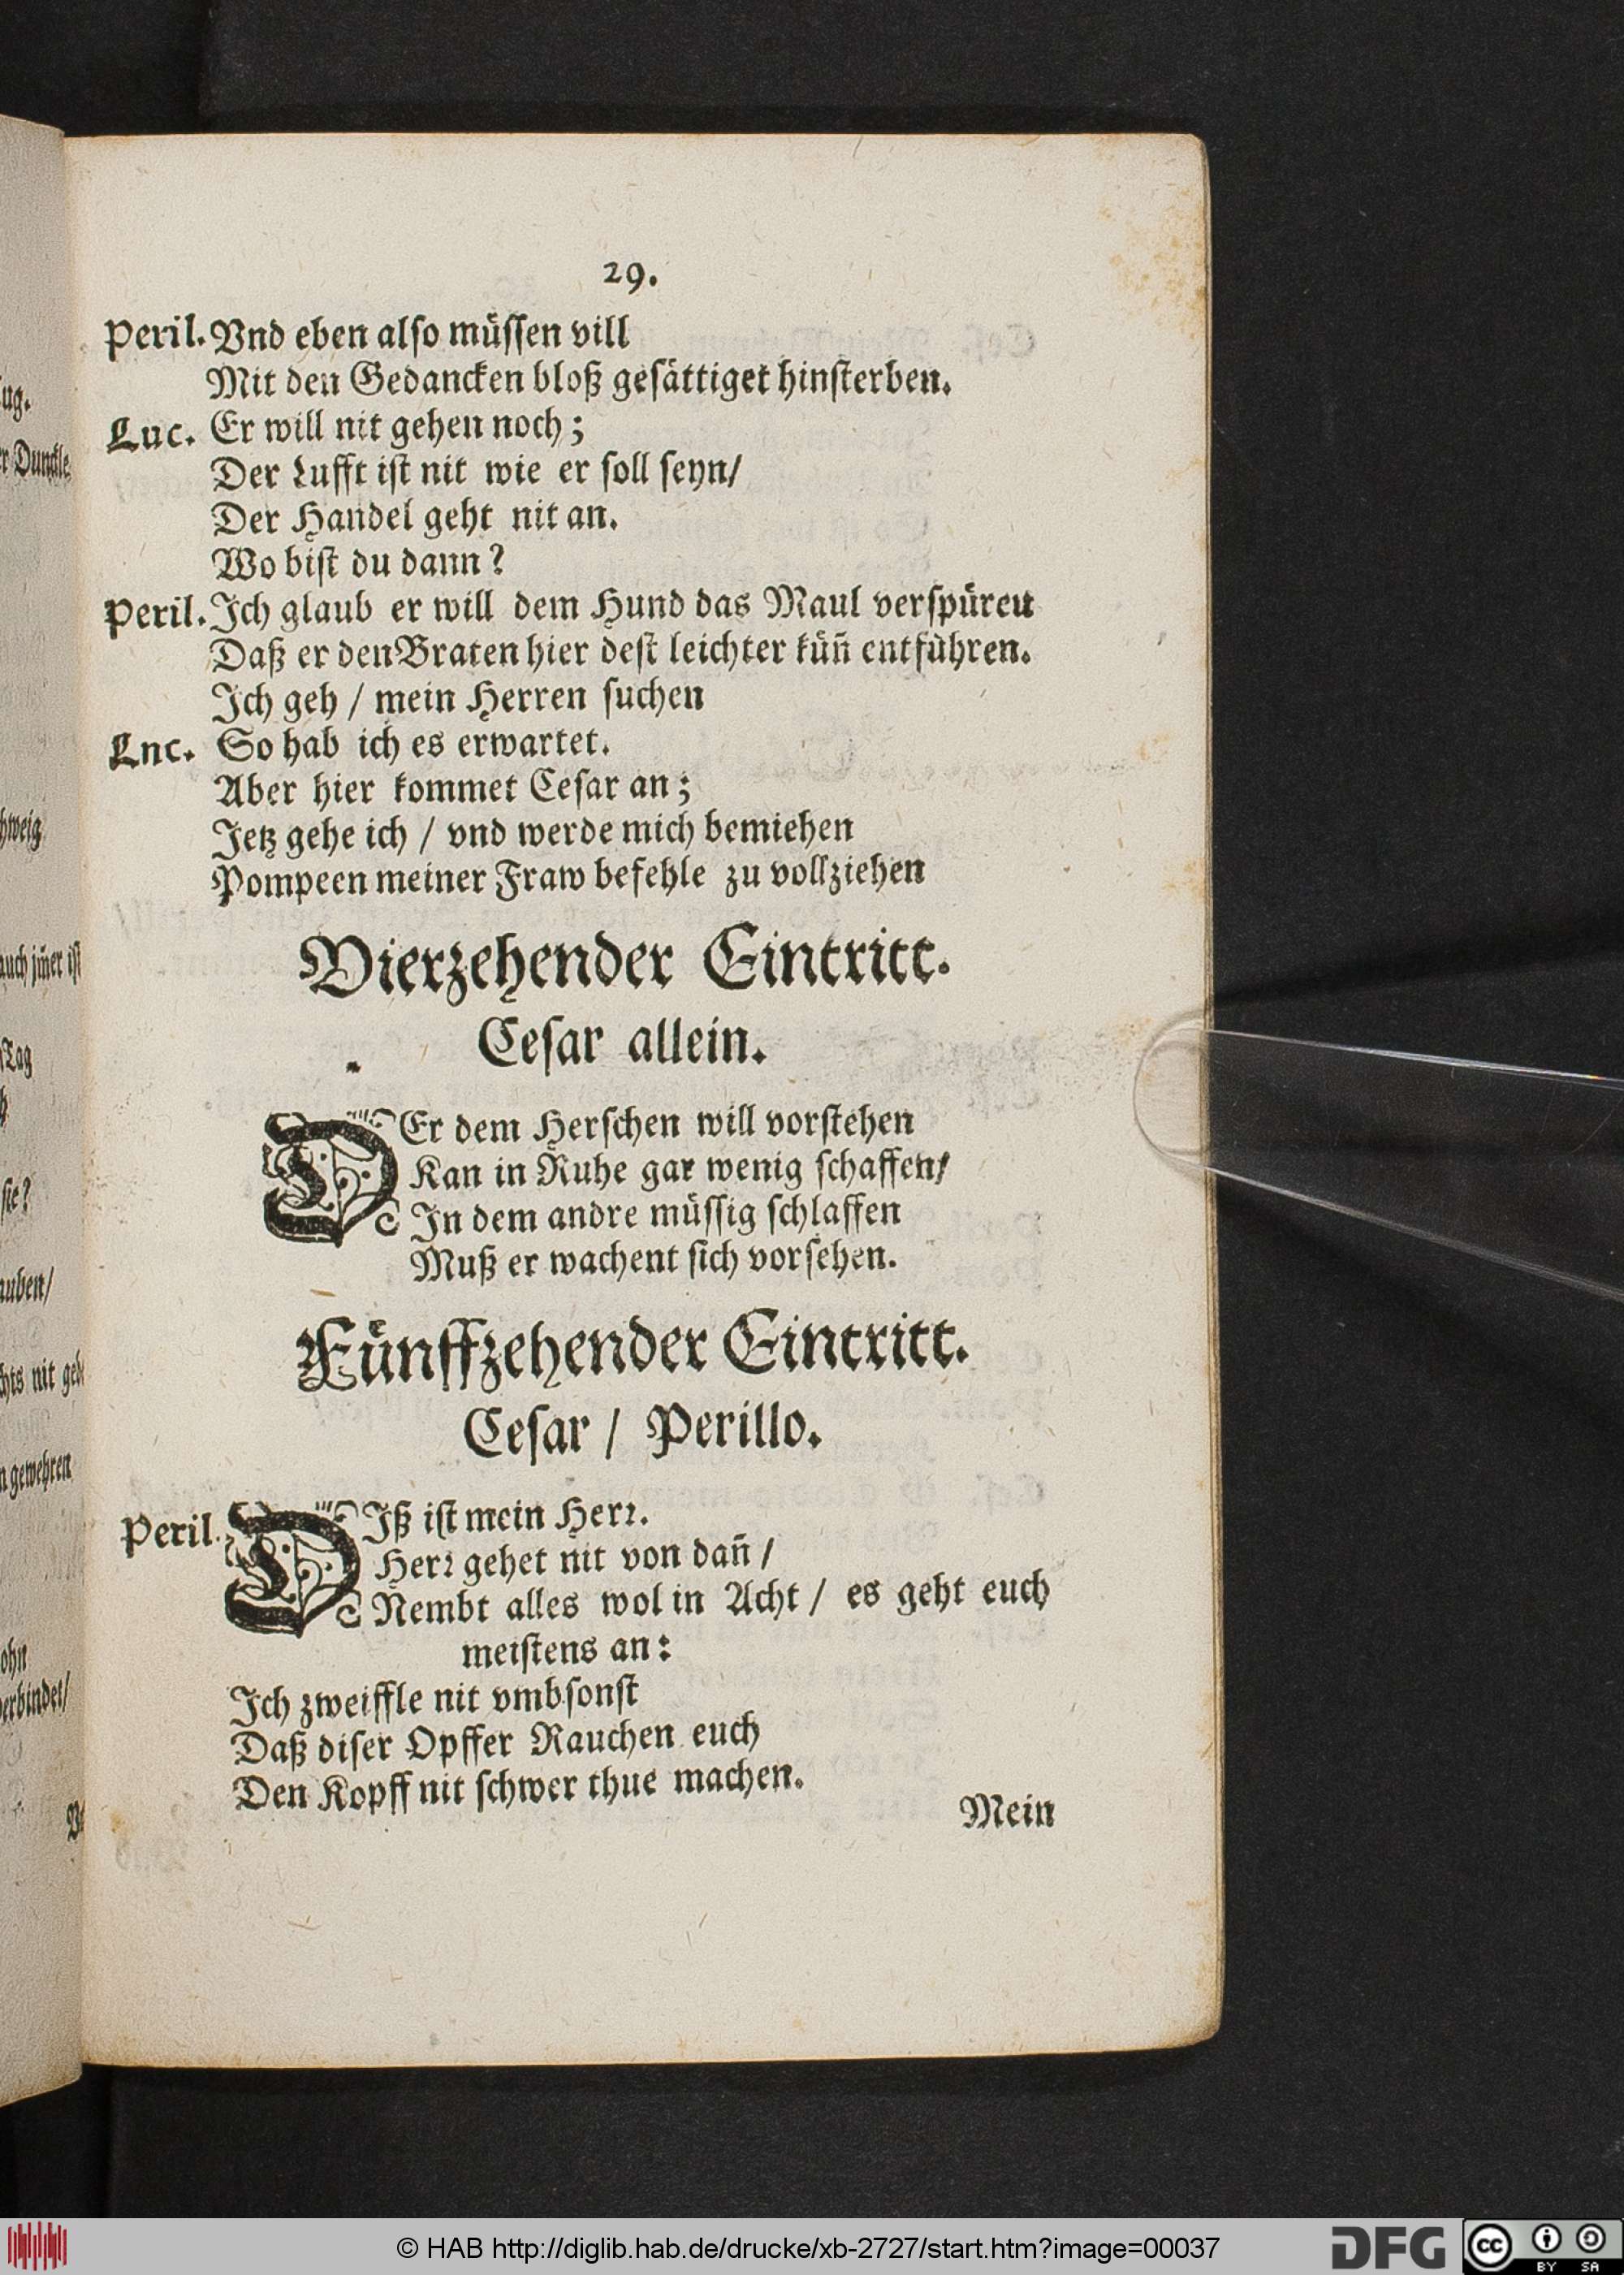 29.
Peril. Vnd eben alſo müſſen vill
Mit den Gedancken bloß geſättiget hinſterben.
Luc. Er will nit gehen noch;
Der Lufft iſt nit wie er ſoll ſeyn/
Der Handel geht nit an.
Wo biſt du dann?
Peril. Ich glaub er will dem Hund das Maul verſpüren
Daß er den Braten hier deſt leichter küñ entführen.
Ich geh / mein Herren ſuchen
Lnc. So hab ich es erwartet.
Aber hier kommet Ceſar an;
Jetz gehe ich / vnd werde mich bemiehen
Pompeen meiner Fraw befehle zu vollziehen
Vierzehender Eintritt.
Ceſar allein.
DEr dem Herſchen will vorſtehen
Kan in Ruhe gar wenig ſchaffen/
In dem andre müſſig ſchlaffen
Muß er wachent ſich vorſehen.
Fünffzehender Eintritt.
Ceſar / Perillo.
Peril. DIß iſt mein Herꝛ.
Herꝛ gehet nit von dañ /
Nembt alles wol in Acht / es geht euch
meiſtens an:
Ich zweiffle nit vmbſonſt
Daß diſer Opffer Rauchen euch
Den Kopff nit ſchwer thue machen.
Mein
ug.
Dunckle
hweig
auch jm̃er iſt
Tag
ſie?
auben/
chts nit
gewehren
ohn
verbindet/
© HAB http://diglib.hab.de/drucke/xb-2727/start.htm?image=00037
DFG
cc
BY SA